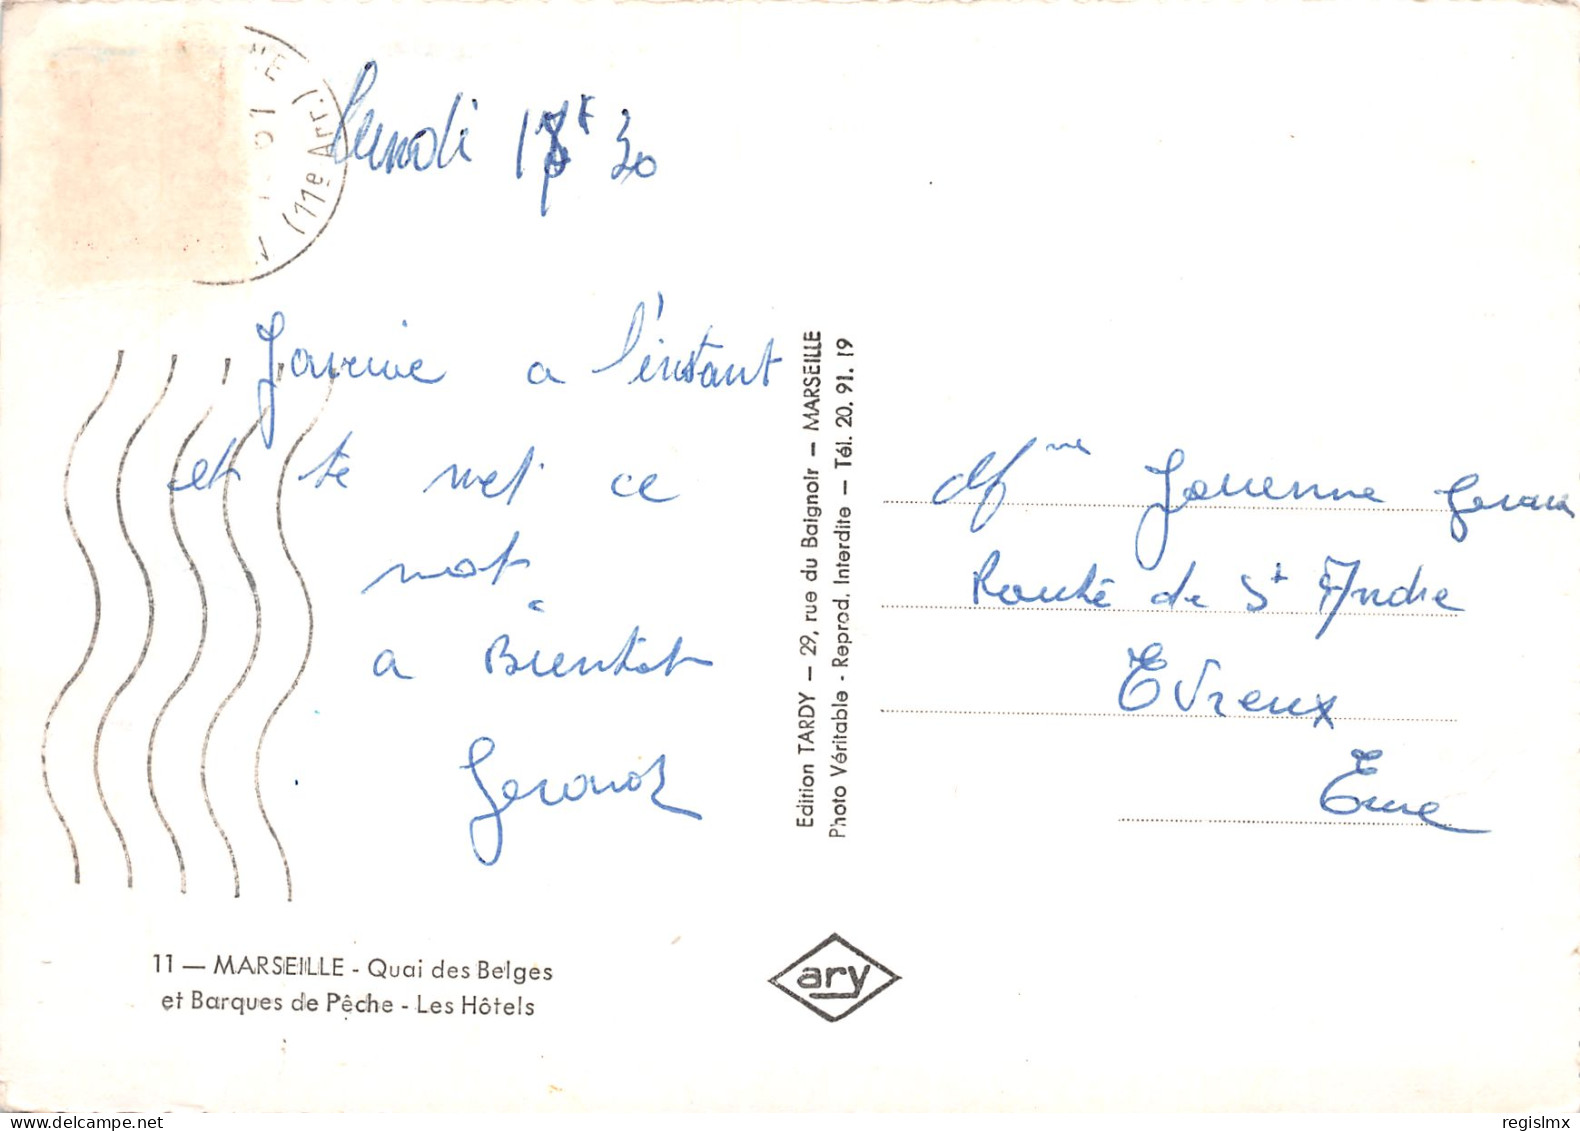 Lundi 17h 30
J'arrive a l'instant
et te met ce
mot
a Bientot
Gerard
11 — MARSEILLE - Quai des Belges
et Barques de Pêche - Les Hôtels
Edition TARDY — 29, rue du Baignoir — MARSEILLE
Photo Véritable - Reprod. Interdite — Tél. 20. 91. 19
ary
Mme Jouenne
Route de St Andre
Evreux
Eure
(11e Arrt)
regislmx